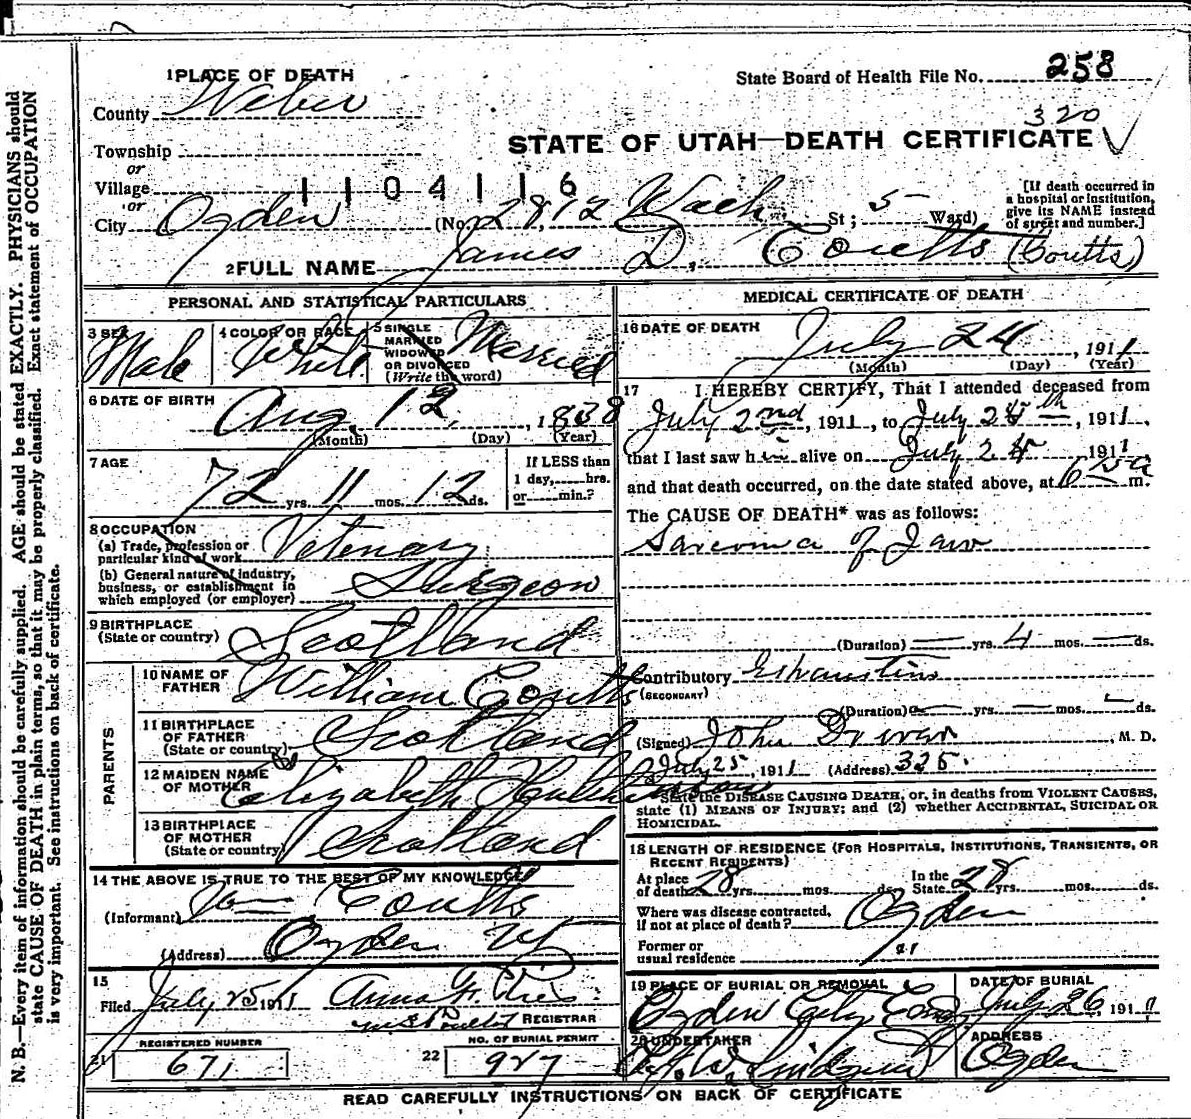 1 PLACE OF DEATH
State Board of Health File No. 258
County Weber
320
STATE OF UTAH—DEATH CERTIFICATE
Township
or
Village
1104116
or
City Ogden (No. 2812 St; 5 Ward)
[If death occurred in
a hospital or institution,
give its NAME instead
of street and number.]
2 FULL NAME James D. Coutts (Coutts)
PERSONAL AND STATISTICAL PARTICULARS
3 SEX Male
4 COLOR OR RACE White
5 SINGLE
MARRIED
WIDOWED
OR DIVORCED
(Write the word)
Married
6 DATE OF BIRTH Aug. 12, 1838
(Month) (Day) (Year)
7 AGE
72 yrs. 11 mos. 12 ds.
If LESS than
1 day, hrs.
or min.?
8 OCCUPATION
(a) Trade, profession or
particular kind of work Vetenary
(b) General nature of industry,
business, or establishment in
which employed (or employer) Surgeon
9 BIRTHPLACE
(State or country) Scotland
PARENTS
10 NAME OF
FATHER William Coutts
11 BIRTHPLACE
OF FATHER
(State or country) Scotland
12 MAIDEN NAME
OF MOTHER Elizabeth
13 BIRTHPLACE
OF MOTHER
(State or country) Scotland
14 THE ABOVE IS TRUE TO THE BEST OF MY KNOWLEDGE
(Informant) Wm Coutts
(Address) Ogden Ut
15
Filed July 25 1911 Anna F.
REGISTRAR
REGISTERED NUMBER
21 671
NO. OF BURIAL PERMIT
22 927
MEDICAL CERTIFICATE OF DEATH
16 DATE OF DEATH July 24, 1911
(Month) (Day) (Year)
17 I HEREBY CERTIFY, That I attended deceased from
July 2nd, 1911, to July 24th, 1911.
that I last saw him alive on July 24 1911,
and that death occurred, on the date stated above, at m.
The CAUSE OF DEATH* was as follows:
Sarcoma of Jaw
(Duration) yrs. 4 mos. ds.
Contributory Exhaustion
(SECONDARY)
(Duration) yrs. mos. ds.
(Signed) John, M. D.
July 25, 1911 (Address) 325.
State the DISEASE CAUSING DEATH, or, in deaths from VIOLENT CAUSES,
state (1) MEANS OF INJURY; and (2) whether ACCIDENTAL, SUICIDAL OR
HOMICIDAL.
18 LENGTH OF RESIDENCE (FOR HOSPITALS, INSTITUTIONS, TRANSIENTS, OR
RECENT RESIDENTS)
At place
of death 28 yrs. mos. ds.
In the
State 28 yrs. mos. ds.
Where was disease contracted,
if not at place of death? Ogden
Former or
usual residence
19 PLACE OF BURIAL OR REMOVAL
Ogden City Cem
DATE OF BURIAL
July 26, 1911
20 UNDERTAKER
ADDRESS
Ogden
READ CAREFULLY INSTRUCTIONS ON BACK OF CERTIFICATE
N. B.—Every item of information should be carefully supplied. AGE should be stated EXACTLY. PHYSICIANS should
state CAUSE OF DEATH in plain terms, so that it may be properly classified. Exact statement of OCCUPATION
is very important. See instructions on back of certificate.